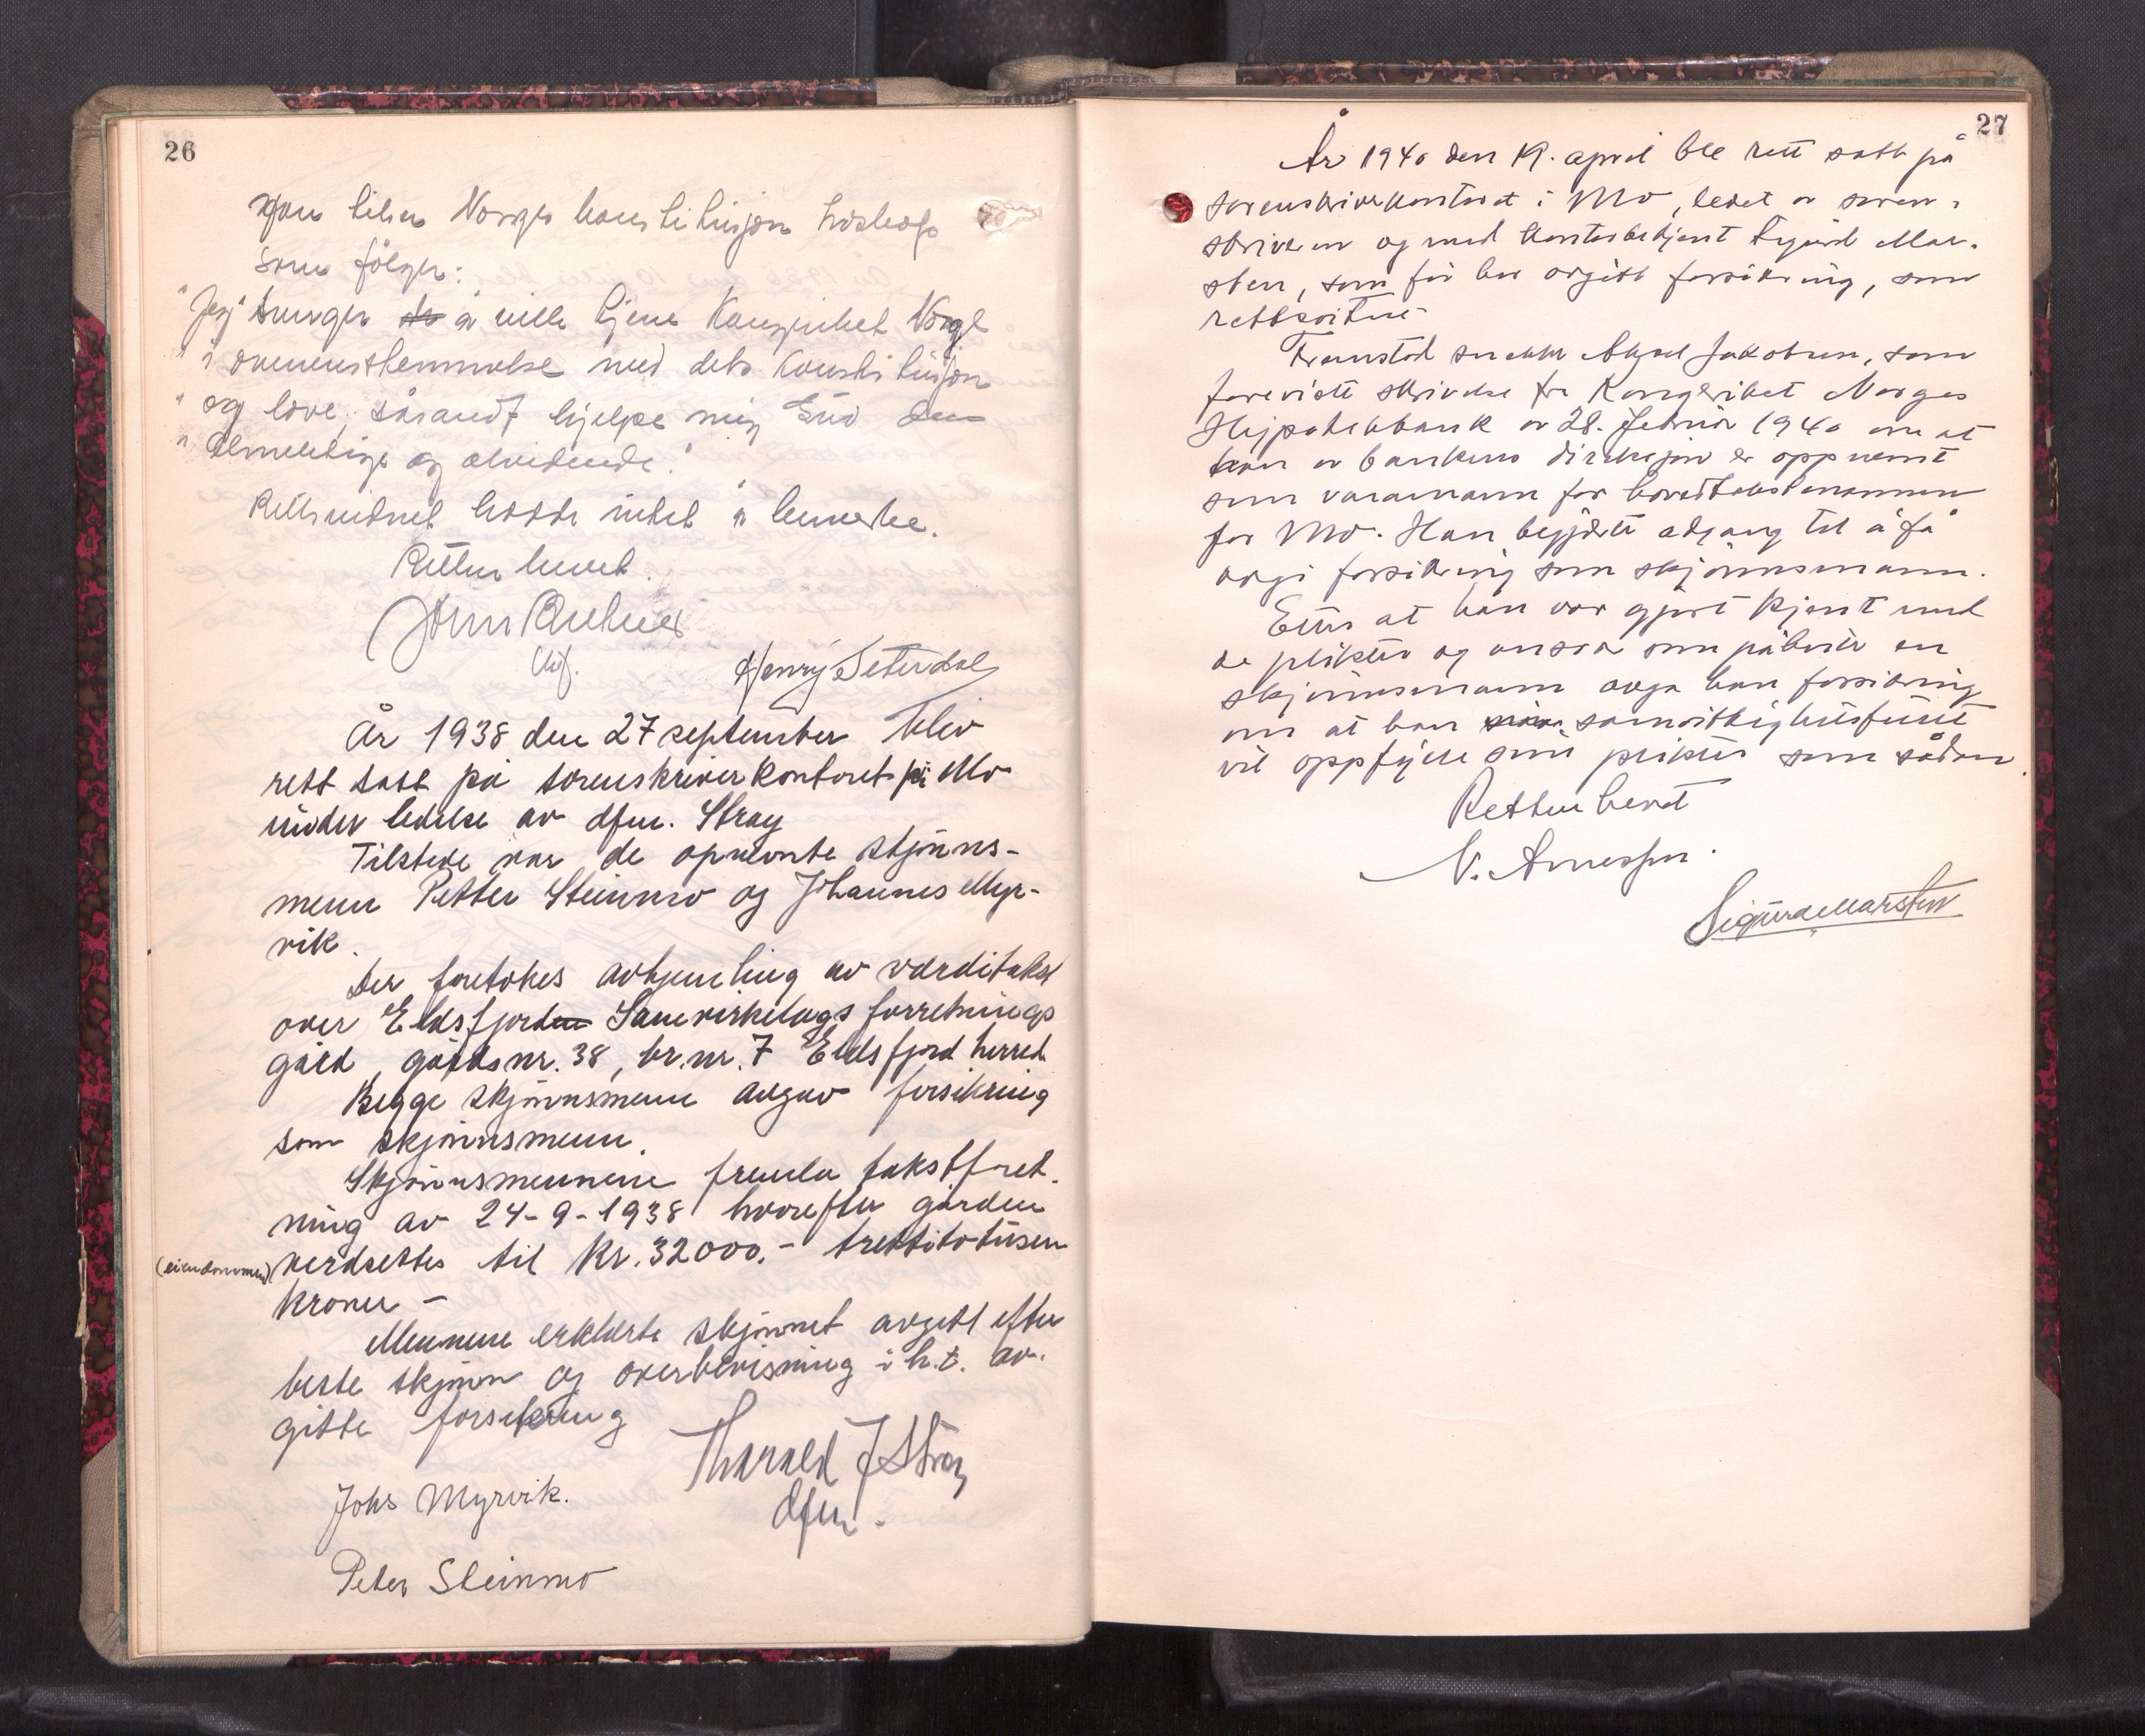 26
som tilsier Norges konstitusjon troskap
som følger:
"Jeg sverger å ville tjene Kongeriket Norge
" i overensstemmelse med dets konstitusjon
" og love, såsandt hjelpe mig Gud den
" Almektige og alvidende."
Rettsvidnet hadde intet å bemerke.
Retten hevet.
Henry Seterdal
År 1938 den 27 september blev
rett satt på sorenskriverkontoret på Mo
under ledelse av dfm. Stray
Tilstede var de opnevnte skjønns-
menn Petter Steinmo og Johannes Myr-
vik.
Der foretokes avhjemling av verditakst
over Eldsfjord Samvirkelags forretnings
gård, gårdsnr. 38, br.nr. 7 Eldsfjord herred
Begge skjønnsmenn avgav forsikring
som skjønnsmenn.
Skjønnsmennene fremla takstforret.
ning av 24-9-1938 hvorefter gården
(eiendommen) verdsettes til kr. 32000.- trettitotusen
kroner -
Mennene erklærte skjønnet avgitt efter
beste skjønn og overbevisning i h.t. av.
gitte forsikring
Tharald J Stray
dfm.
Johs Myrvik.
Peter Steinmo
27
År 1940 den 19. april ble rett satt på
sorenskriverkontoret i Mo, ledet av soren-
skriveren og med kontorbetjent Sigurd Mar-
sten, som før har avgitt forsikring, som
rettsvitne
Framstod snekker Aksel Jakobsen, som
foreviste skrivelse fra Kongeriket Norges
Hypotekbank av 28. februar 1940 om at
han av bankens direksjon er oppnevnt
som varamann for hovedtakstmannen
for Mo. Han begjærte adgang til å få
avgi forsikring som skjønnsmann.
Etter at han var gjort kjent med
de plikter og ansvar som påhviler en
skjønnsmann avga han forsikring
om at han samvittighetsfullt
vil oppfylle sine plikter som sådan.
Retten hevet
N. Arnessen.
Sigurd Marsten